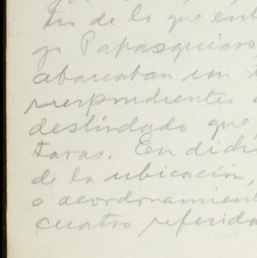 tes de lo que ent
go Papasquiaro
abarcaban un
rrespondientes
deslindado que
taras. En dich
de la ubicación,
o acordonamient
cuatro referida